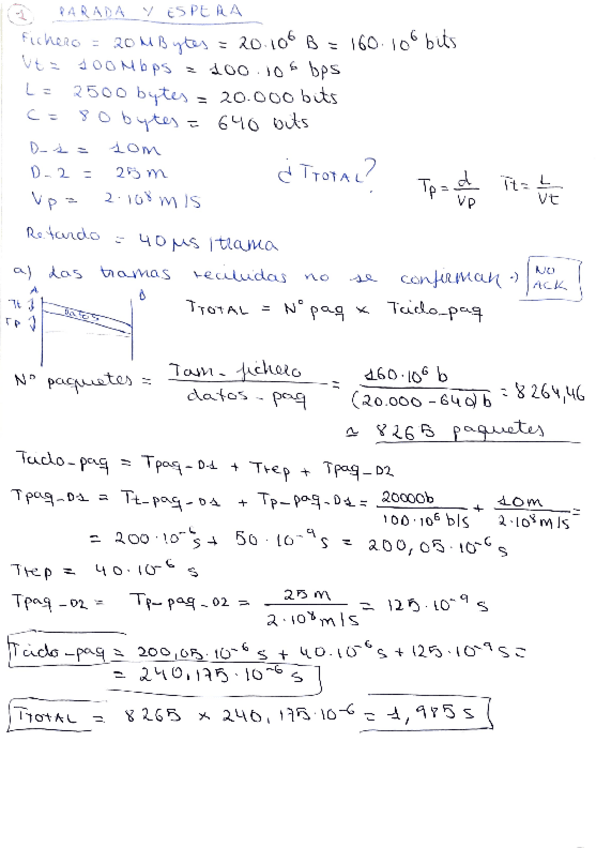 1 PARADA Y ESPERA
Fichero = 20MBytes = 20·10⁶ B = 160·10⁶ bits
Vt = 100Mbps = 100·10⁶ bps
L = 2500 bytes = 20.000 bits
C = 80 bytes = 640 bits
D_1 = 10m
D_2 = 25m ¿TTOTAL? Tp = d/Vp Tt = L/Vt
Vp = 2·10⁸ m/s
Retardo = 40 µs/trama
a) Las tramas recibidas no se confirman → NO ACK
A B
Tt
Tp DATOS TTOTAL = Nº paq x Tciclo_paq
Nº paquetes = Tam_fichero/datos_paq = 160·10⁶ b/(20.000 - 640)b = 8264,46
≃ 8265 paquetes
Tciclo_paq = Tpaq_D1 + Trep + Tpaq_D2
Tpaq_D1 = Tt_paq_D1 + Tp_paq_D1 = 20000b/100·10⁶ b/s + 10m/2·10⁸ m/s =
= 200·10⁻⁶ s + 50·10⁻⁹ s = 200,05·10⁻⁶ s
Trep = 40·10⁻⁶ s
Tpaq_D2 = Tp_paq_D2 = 25m/2·10⁸ m/s = 125·10⁻⁹ s
Tciclo_paq = 200,05·10⁻⁶ s + 40·10⁻⁶ s + 125·10⁻⁹ s =
= 240,175·10⁻⁶ s
TTOTAL = 8265 x 240,175·10⁻⁶ = 1,985 s